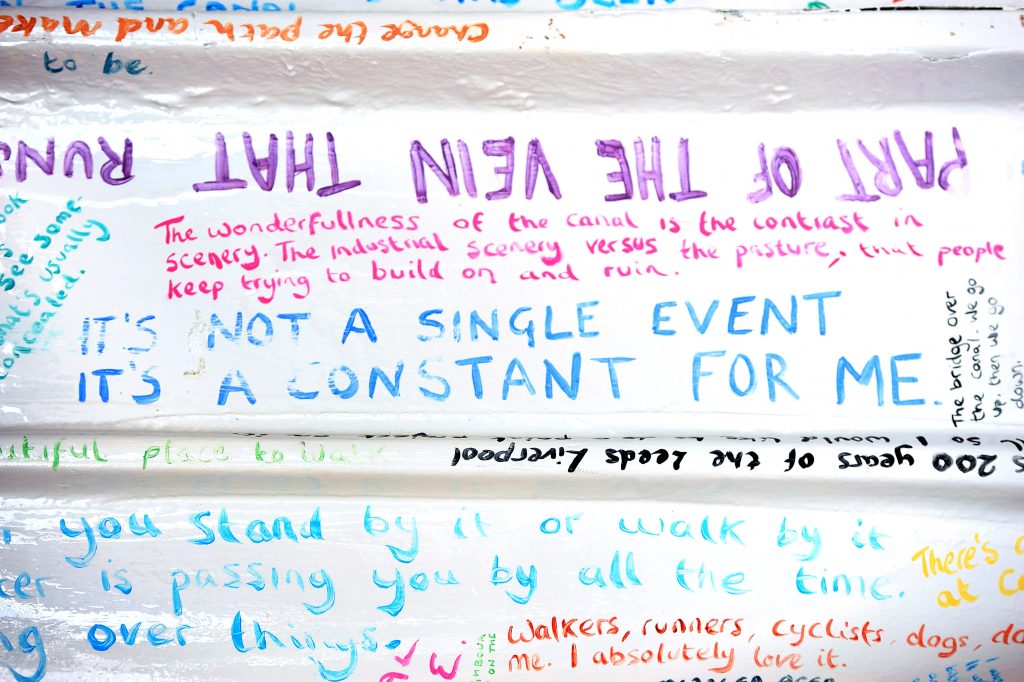 Change the path and make
to be.
PART OF THE VEIN THAT RUNS
The wonderfullness of the canal is the contrast in
scenery. The industrial scenery versus the pasture, that people
keep trying to build on and ruin.
ook
see some-
what's usually
concealed.
IT'S NOT A SINGLE EVENT
IT'S A CONSTANT FOR ME.
The bridge over
the canal. We go
up, then we go
down.
utiful place to walk
200 years of the Leeds Liverpool
you stand by it or walk by it
is passing you by all the time.
ng over things.
There's
at
Walkers, runners, cyclists, dogs,
me. I absolutely love it.
ON THE